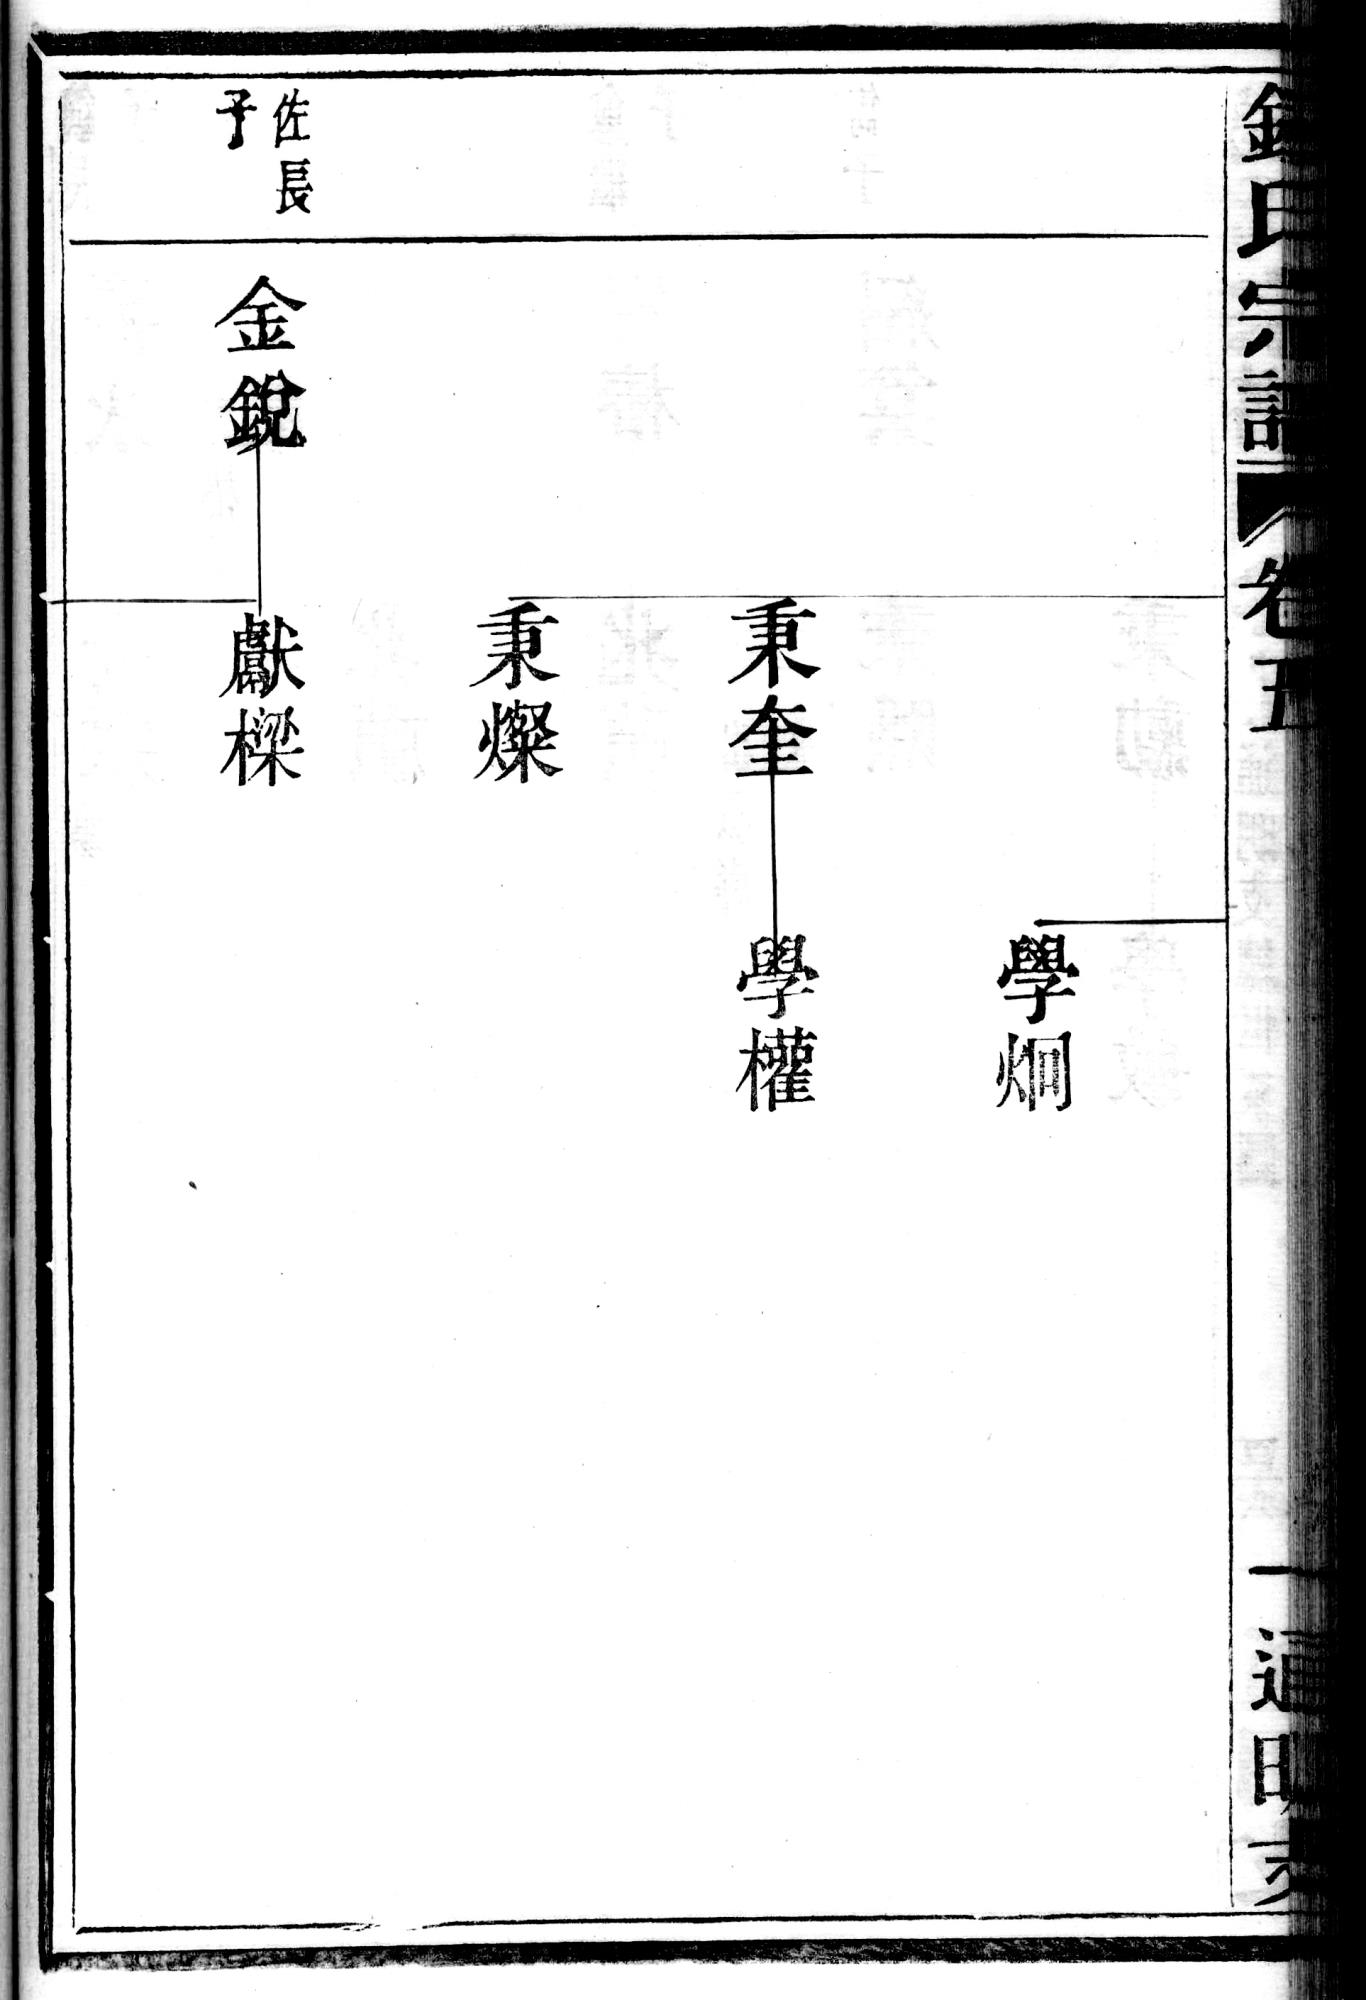 氏宗譜 卷五
一 通明支
學炯
秉奎
學權
秉燦
佐長
子
金銳
獻樑